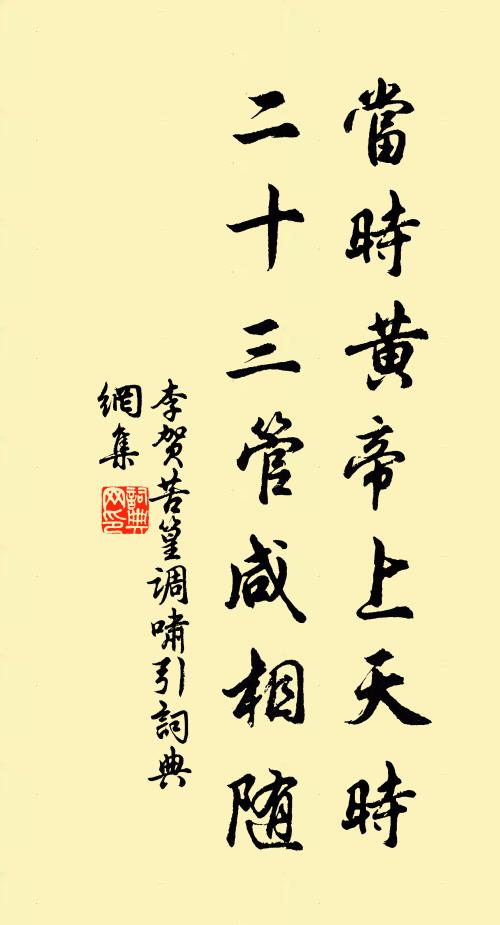 當時黃帝上天時
二十三管咸相随
李賀苦篁調嘯引詞典
網集
詞典
网印